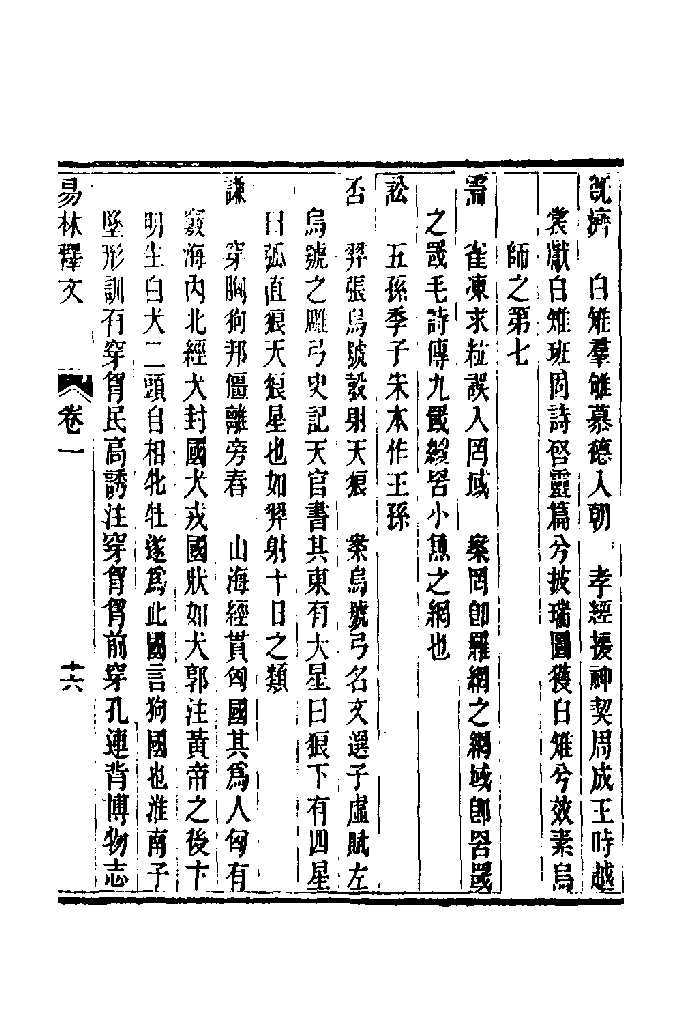 既濟　白雉羣雊慕德入朝　孝經援神契周成王時越
裳獻白雉班固詩啓靈篇兮披瑞圖獲白雉兮效素烏
師之第七
需　雀凍求粒誤入罔域　案罔卽羅網之網域卽罟罭
之罭毛詩傳九罭緵罟小魚之網也
訟　五孫季子朱本作王孫
否　羿張烏號彀射天狼　案烏號弓名文選子虛賦左
烏號之雕弓史記天官書其東有大星曰狼下有四星
曰弧直狼天狼星也如羿射十日之類
謙　穿胸狗邦僵離旁舂　山海經貫匈國其為人匈有
竅海內北經犬封國犬戎國狀如犬郭注黃帝之後卞
明生白犬二頭自相牝牡遂為此國言狗國也淮南子
墜形訓有穿胷民高誘注穿胷胷前穿孔連背博物志
易林釋文　卷一　十六